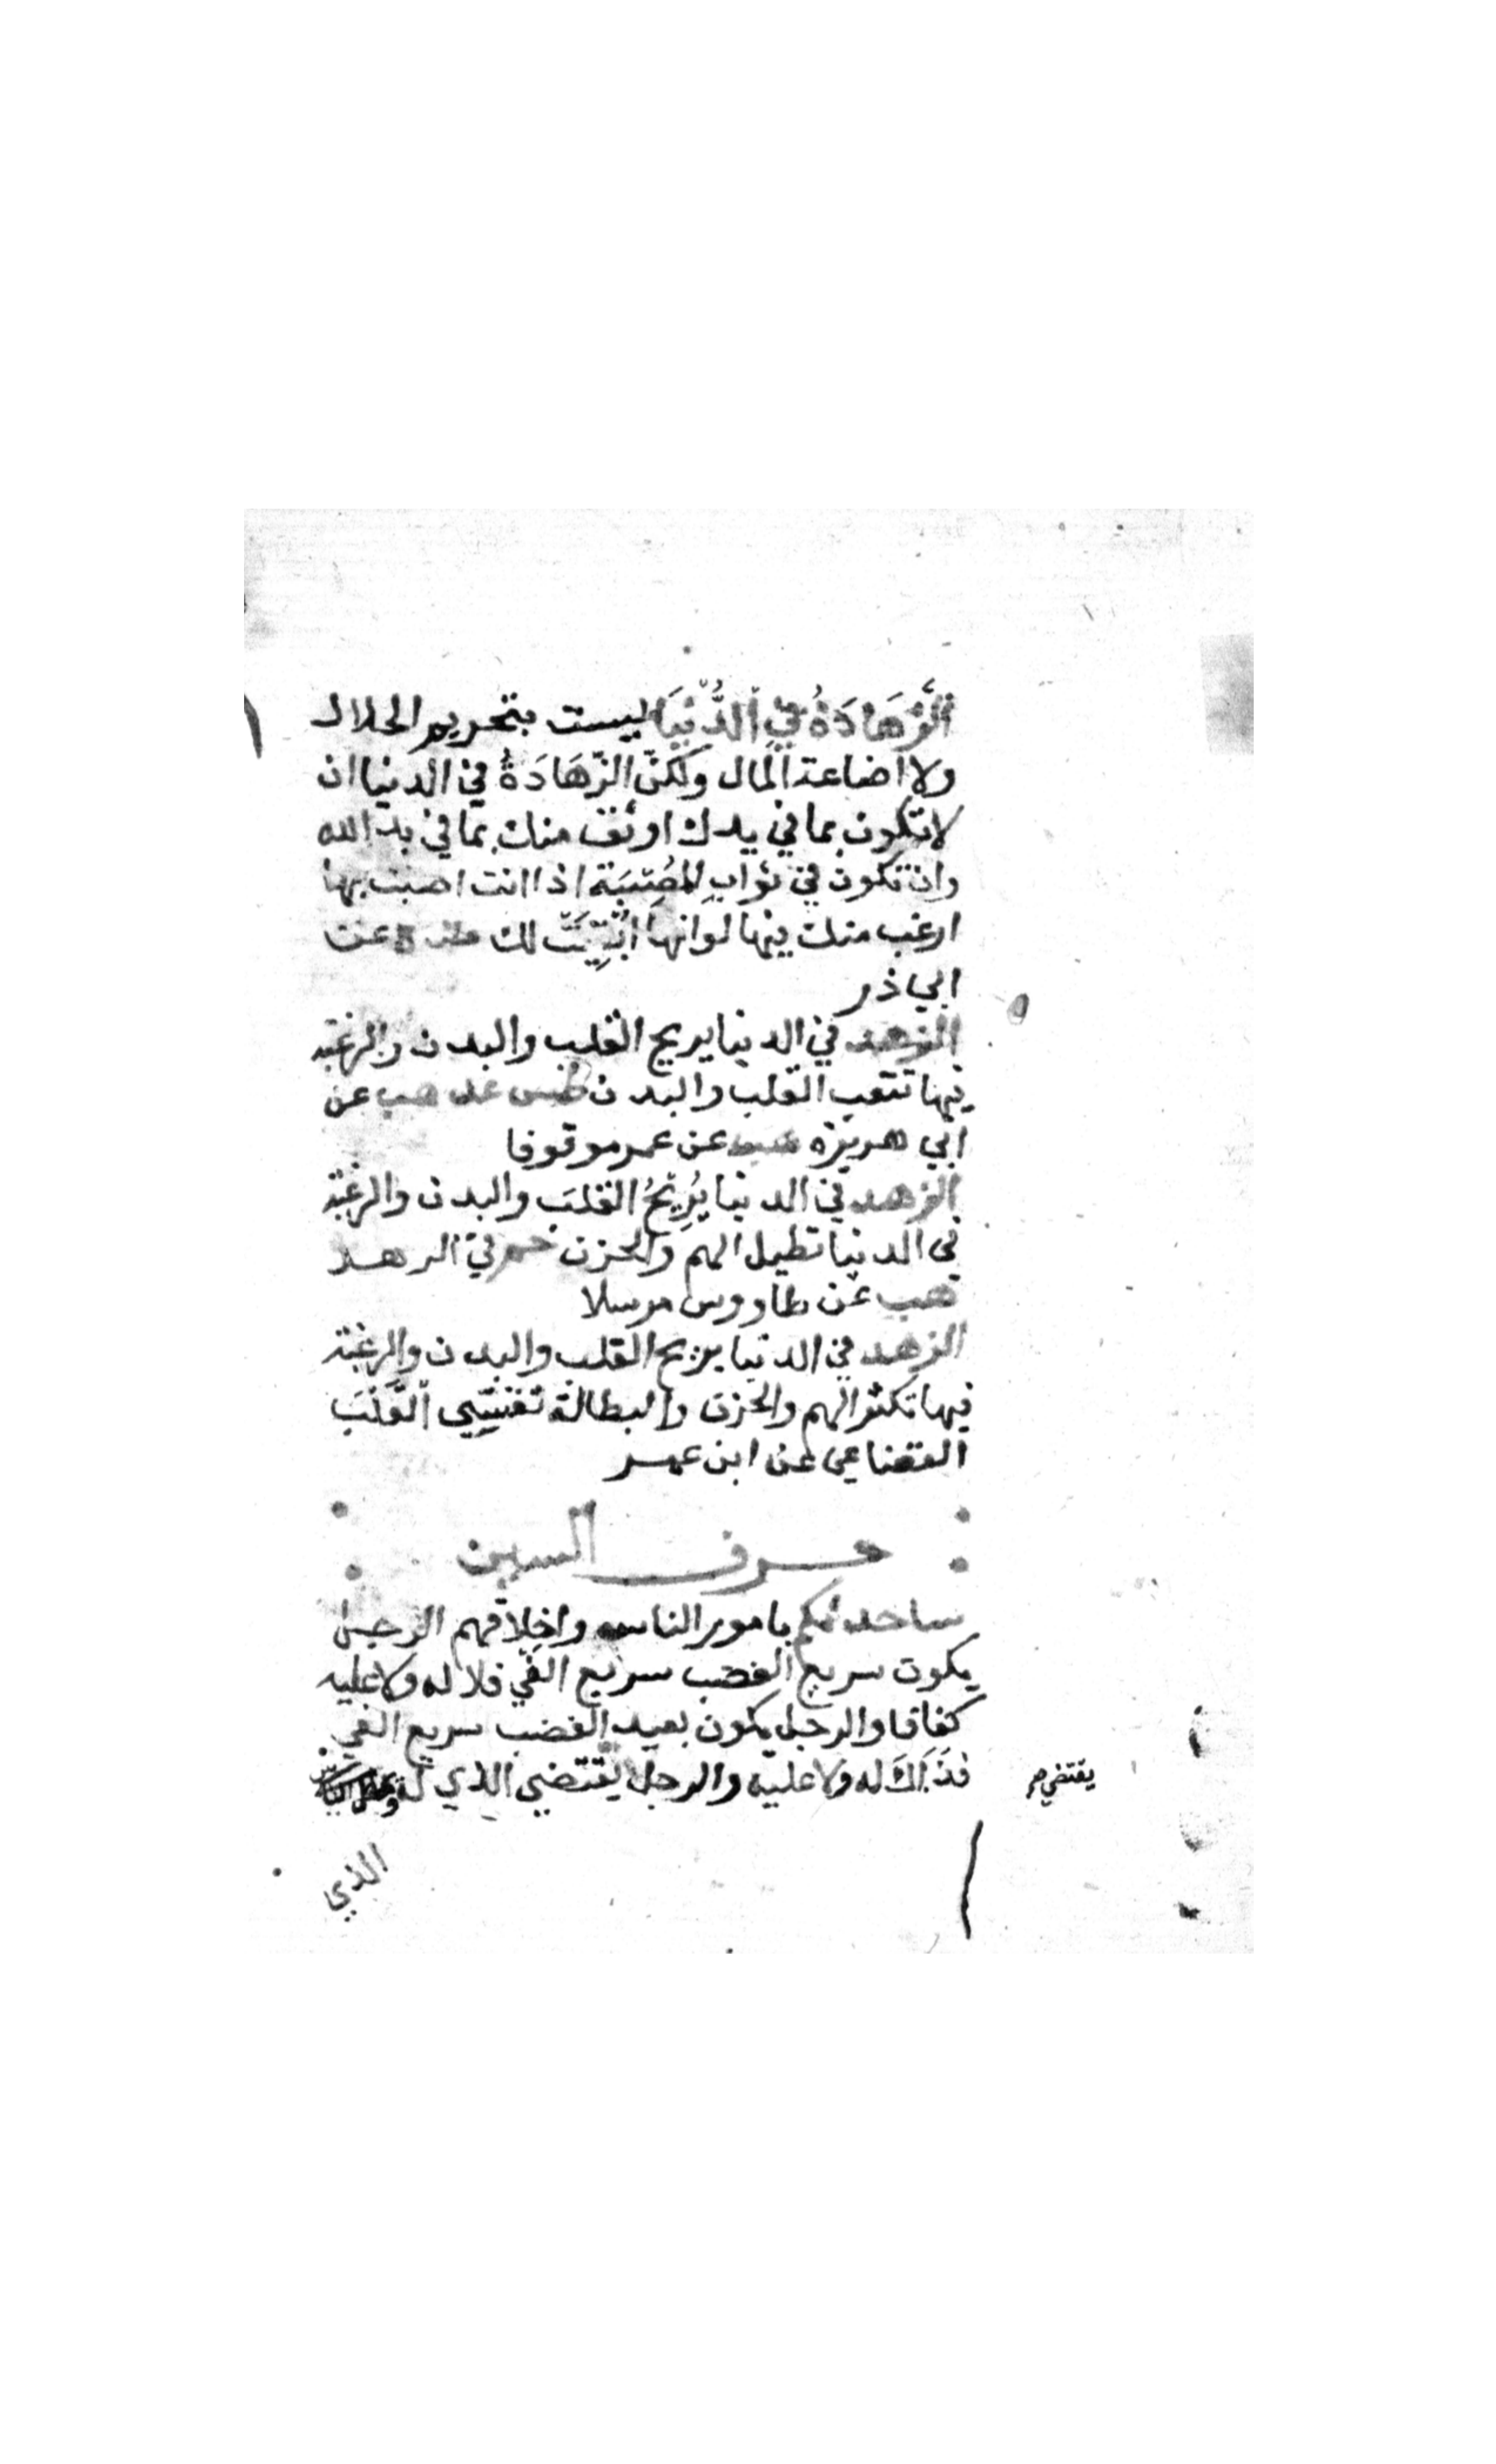 الزَّهَادَةُ فِي الدُّنْيَا ليست بتحريم الحلال
ولا اضاعة المال ولكنّ الزَّهَادَةُ في الدنيا ان
لا تكون بما في يدك اوثق منك بما في يد الله
وان تكون في ثوابِ المُصِيبَة اذا انت اصبت بها
ارغب منك فيها لو انها اُبْقِيَتْ لك عن
ابي ذر
الزهد في الدنيا يريح القلب والبدن والرغبة
فيها تتعب القلب والبدن طس عد هب عن
ابي هريرة هب عن عمر موقوفا
الزهد في الدنيا يُرِيحُ القلبَ والبدن والرغبة
في الدنيا تطيل الهم والحزن حم في الزهد
هب عن طاووس مرسلا
الزهد في الدنيا يريح القلب والبدن والرغبة
فيها تكثر الهم والحزن والبطالة تقسي القَلْبَ
القضاعي عن ابن عمر
حرف السين
ساحدثكم بامور الناس واخلاقهم الرجل
يكون سريع الغضب سريع الفي فلا له ولا عليه
كفافا والرجل يكون بعيد الغضب سريع الفي
فذَاكَ له ولا عليه والرجل يقتضي الذي له
يقتضي
الذي